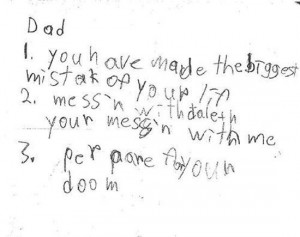 Dad
1. you have made the biggest
mistak of your lif
2. mess'n with
your mess'n with me
3. per pare for your
doom